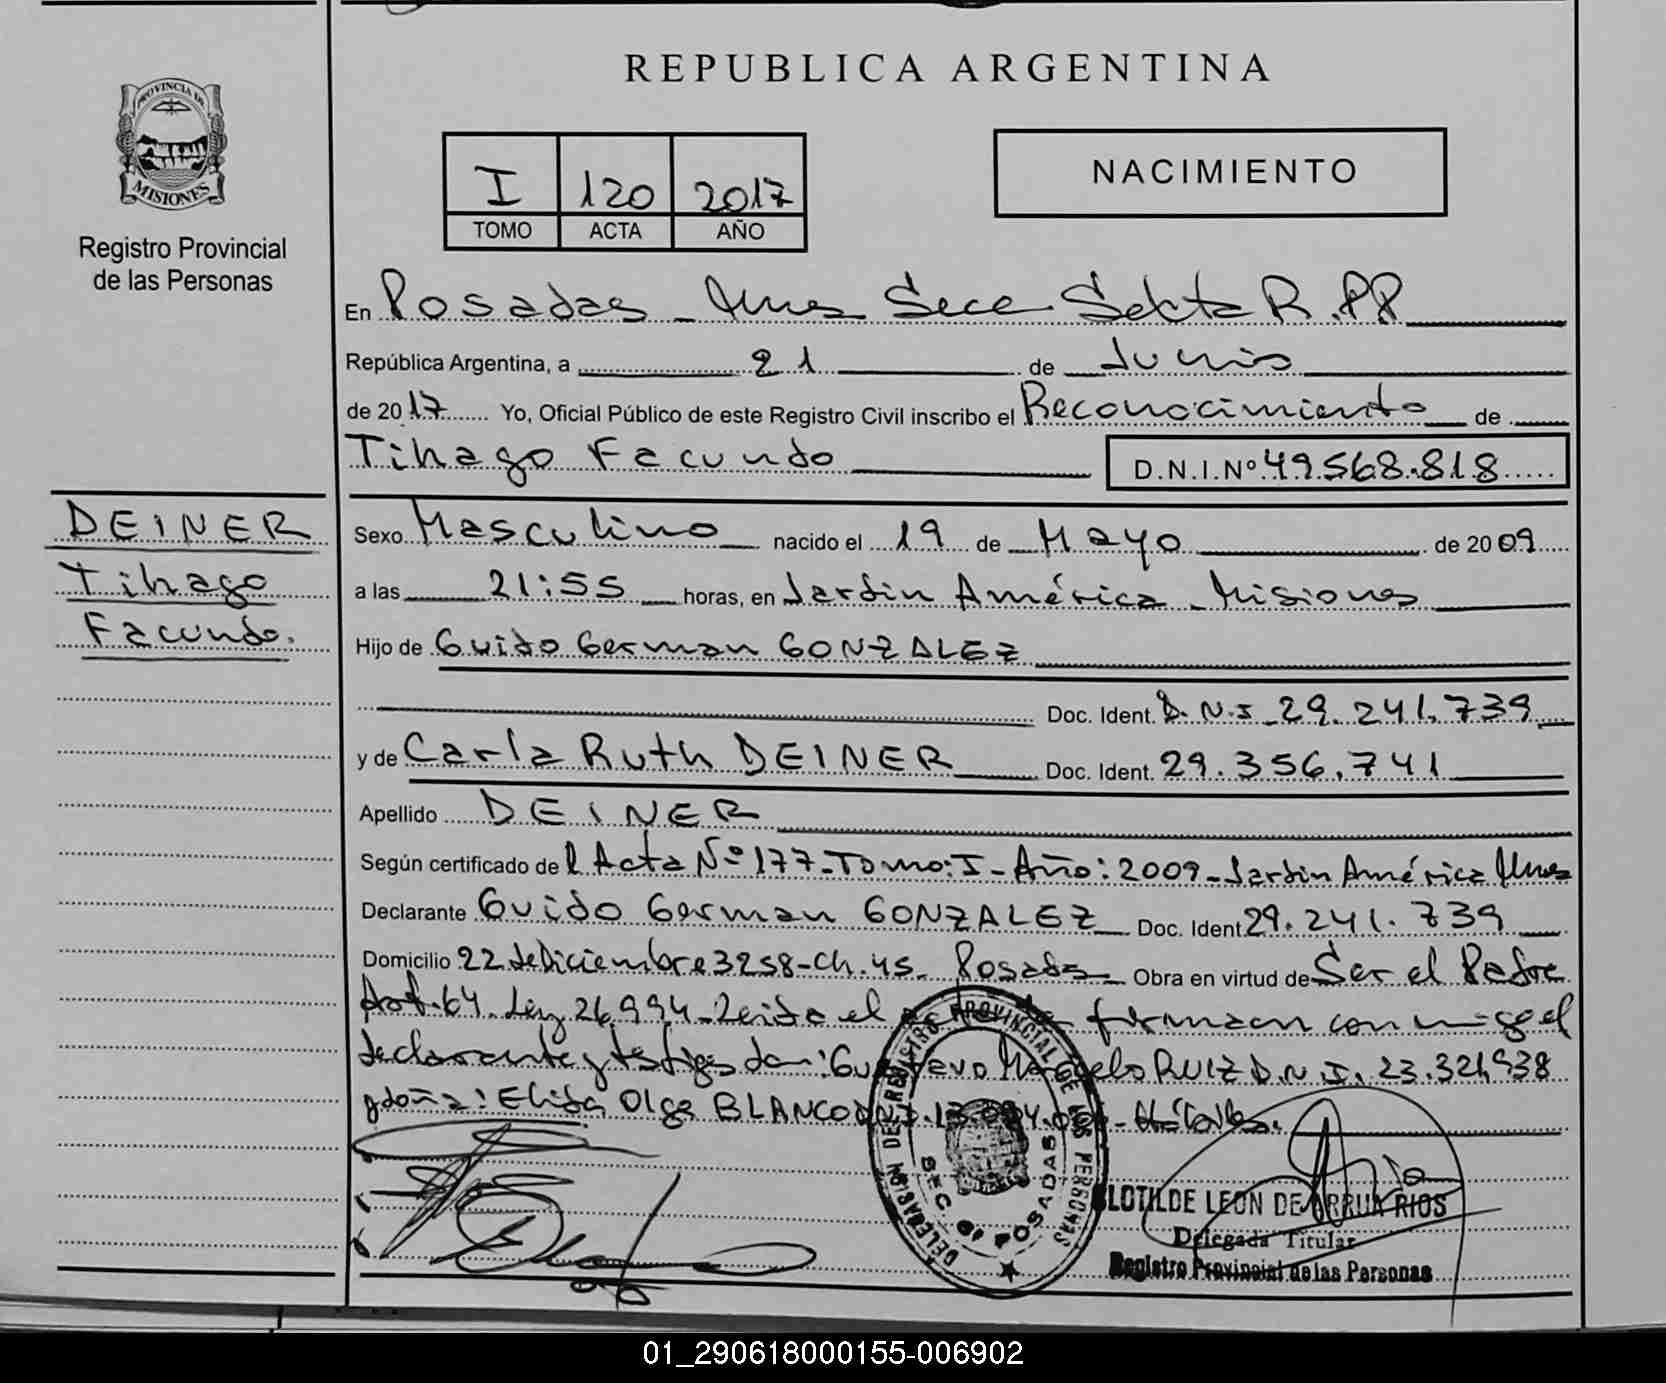 REPUBLICA ARGENTINA
PROVINCIA DE
MISIONES
Registro Provincial
de las Personas
I 120 2017
TOMO ACTA AÑO
NACIMIENTO
En Posadas - Mnes Secc Sexta R.PP
República Argentina, a 21 de Junio
de 2017 Yo, Oficial Público de este Registro Civil inscribo el Reconocimiento de
Tihago Facundo D.N.I.Nº 49.568.818
DEINER
Tihago
Facundo.
Sexo Masculino nacido el 19 de Mayo de 2009
a las 21:55 horas, en Jardin América - Misiones
Hijo de Guido German GONZALEZ
Doc. Ident. D.N.I 29.241.739
y de Carla Ruth DEINER Doc. Ident. 29.356.741
Apellido DEINER
Según certificado de l Acta Nº 177-Tomo: I-Año: 2009-Jardin América Mnes
Declarante Guido German GONZALEZ Doc. Ident. 29.241.739
Domicilio 22 de Diciembre 3258-Ch. 45- Posadas Obra en virtud de Ser el Padre
Art. 64. Ley 26.994-Leida el firman conmigo el
declarante y testigos don: Gustavo Marcelo RUIZ D.N.I. 23.321.938
y doña: Elida Olga BLANCO
DELEGACION DEL REGISTRO PROVINCIAL DE LAS PERSONAS
SEC. 6ª POSADAS
CLOTILDE LEON DE ARRUA RIOS
Delegada Titular
Registro Provincial de las Personas
01_290618000155-006902